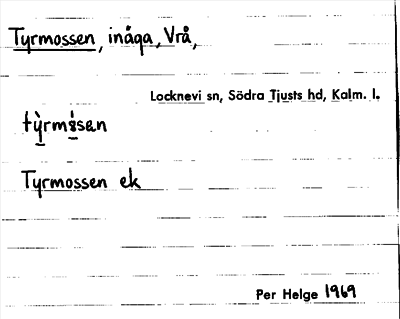 Tyrmossen, inåga, Vrå,
Locknevi sn, Södra Tjusts hd, Kalm. l.
Tyrmossen ek
Per Helge 1969